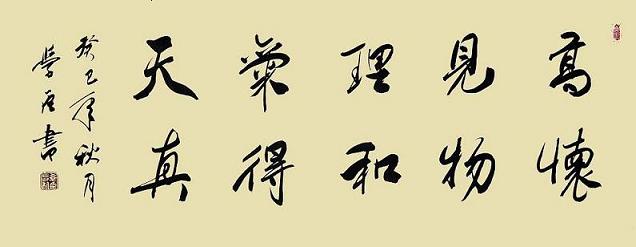 高懷
見物
理和
氣得
天真
癸巳年秋月
學書